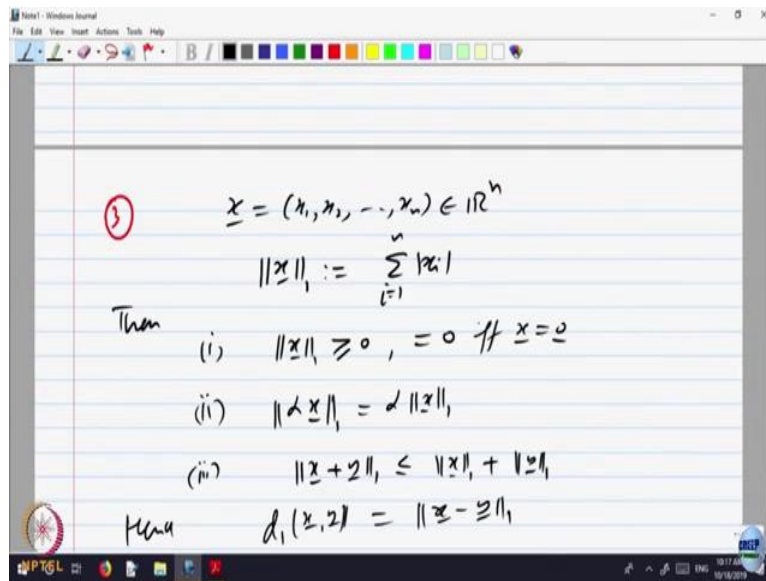 Note1 - Windows Journal
File Edit View Insert Actions Tools Help
B I
③ x = (x₁, x₂, --, xₙ) ∈ ℝⁿ
||x||₁ := Σ_{i=1}^{n} |xᵢ|
Then
(i) ||x||₁ ≥ 0, = 0 iff x = 0
(ii) ||αx||₁ = α ||x||₁
(iii) ||x + y||₁ ≤ ||x||₁ + ||y||₁
Hence d₁(x, y) = ||x - y||₁
NPTEL
ENG
10:17 AM
10/18/2019